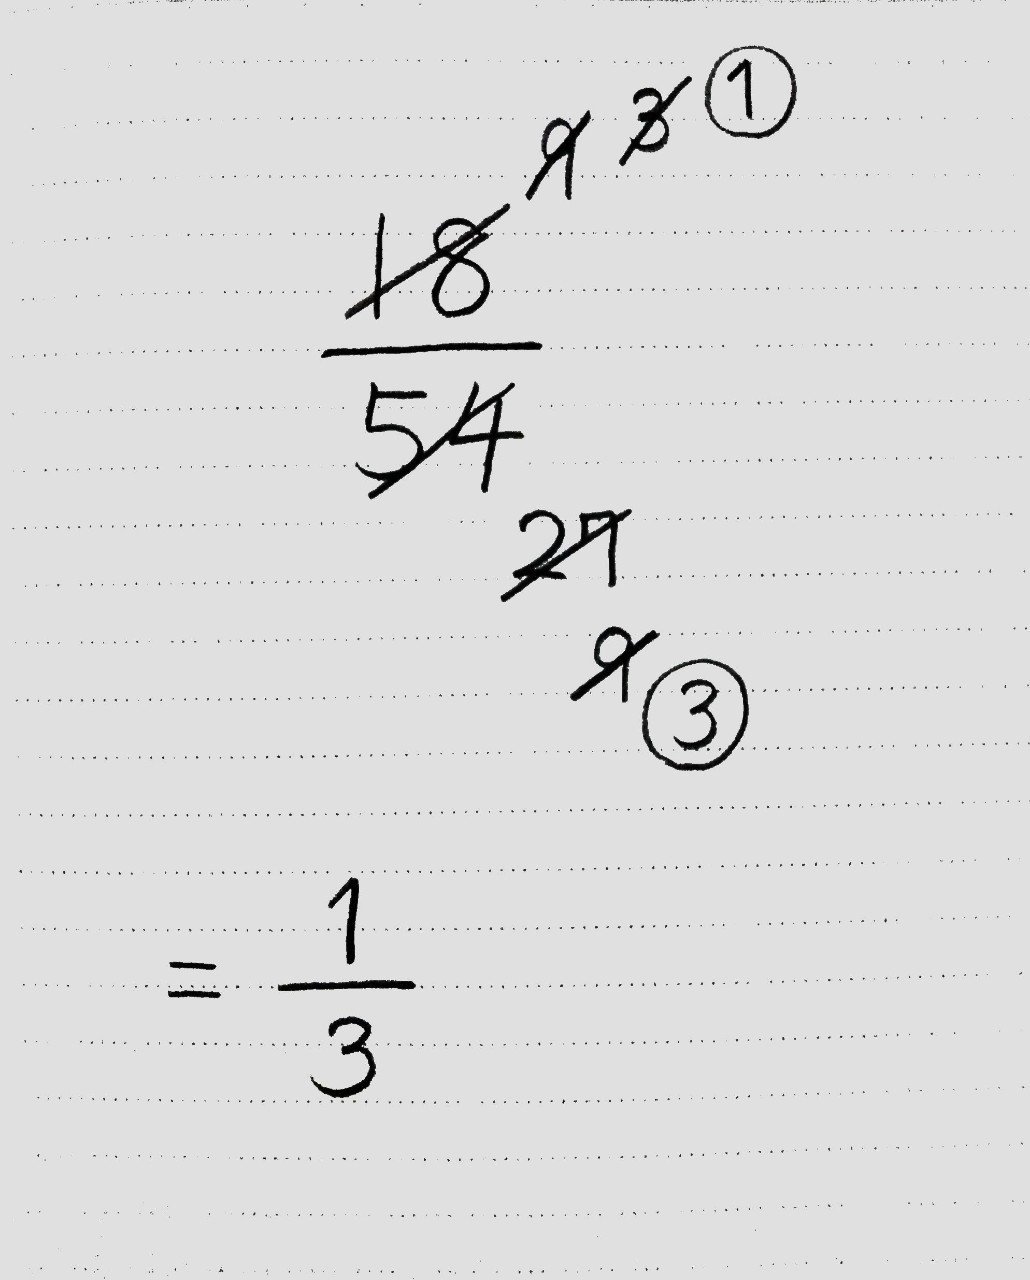 9 3 1
18
54
27
9 3
= 1
3